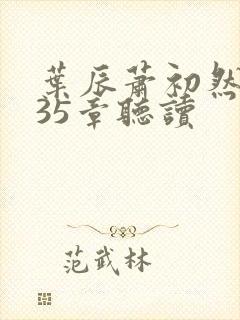 葉辰蕭初然
35章聽讀
范武林